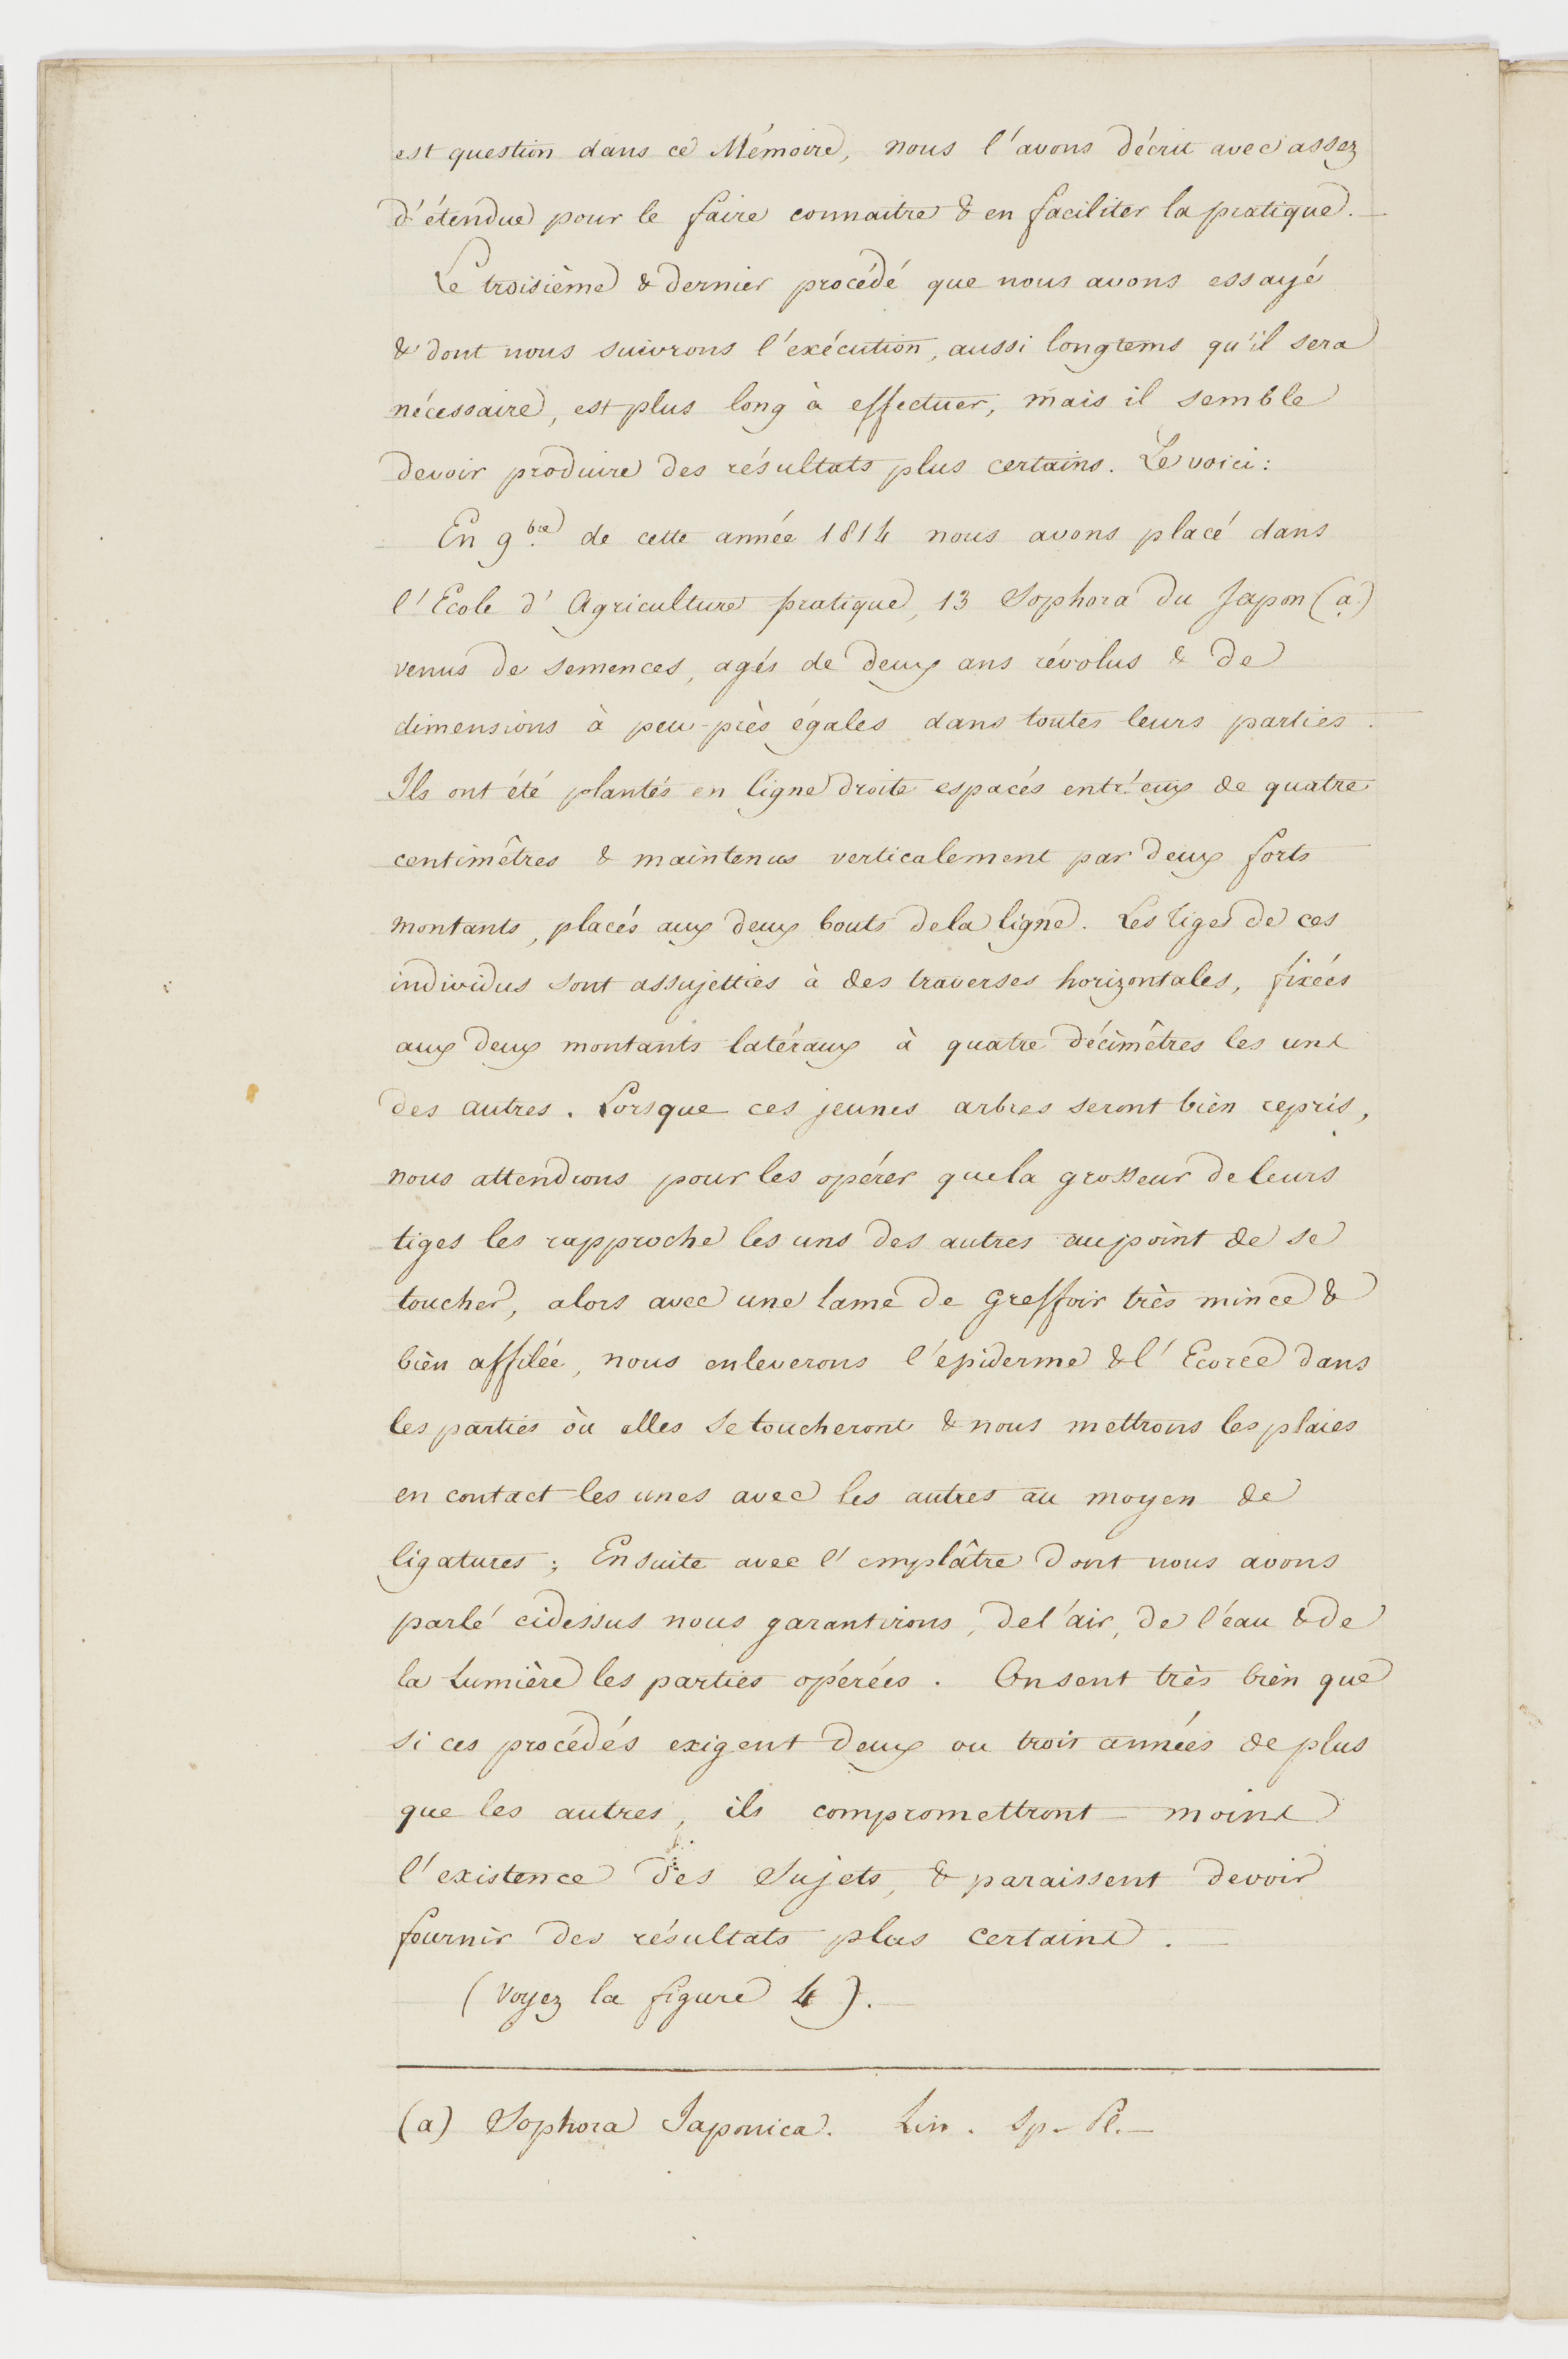 est question dans ce Mémoire, nous l'avons décrit avec assez
d'étendue pour le faire connaitre & en faciliter la pratique.
Le troisième & dernier procédé que nous avons essayé
& dont nous suivrons l'exécution, aussi longtems qu'il sera
nécessaire, est plus long à effectuer, mais il semble
devoir produire des résultats plus certains. Le voici :
En 9bre de cette année 1814 nous avons placé dans
l'Ecole d'Agriculture pratique, 13 Sophora du Japon (a)
venus de semences, agés de deux ans révolus & de
dimensions à peu-près égales dans toutes leurs parties.
Ils ont été plantés en ligne droite espacés entr'eux de quatre
centimêtres & maintenus verticalement par deux forts
montants, placés aux deux bouts de la ligne. Les tiges de ces
individus sont assujetties à des traverses horizontales, fixées
aux deux montants latéraux à quatre décimêtres les uns
des autres. Lorsque ces jeunes arbres seront bien repris,
nous attendrons pour les opérer que la grosseur de leurs
tiges les rapproche les uns des autres au point de se
toucher, alors avec une lame de Greffoir très mince &
bien affilée, nous enleverons l'épiderme & l'Ecorce dans
les parties où elles se toucheront & nous mettrons les plaies
en contact les unes avec les autres au moyen de
ligatures ; Ensuite avec l'emplâtre dont nous avons
parlé cidessus nous garantirons, de l'air, de l'eau & de
la Lumière les parties opérées. On sent très bien que
si ces procédés exigent deux ou trois années de plus
que les autres, ils compromettront moins
l'existence des Sujets, & paraissent devoir
fournir des résultats plus certains.
(Voyez la figure 4).
(a) Sophora Japonica. Lin. Sp. Pl.